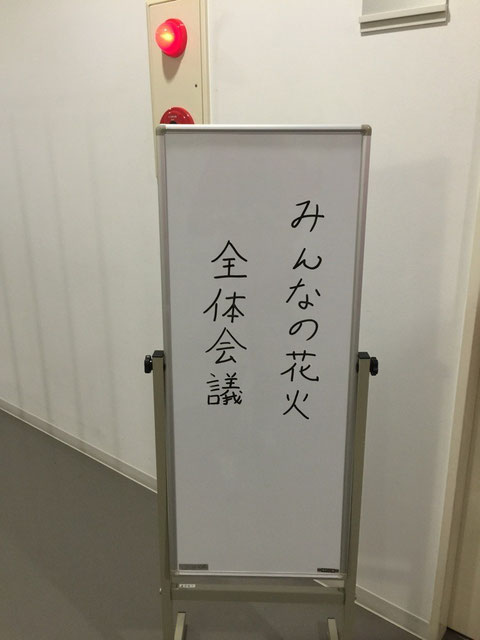 みんなの花火
全体会議